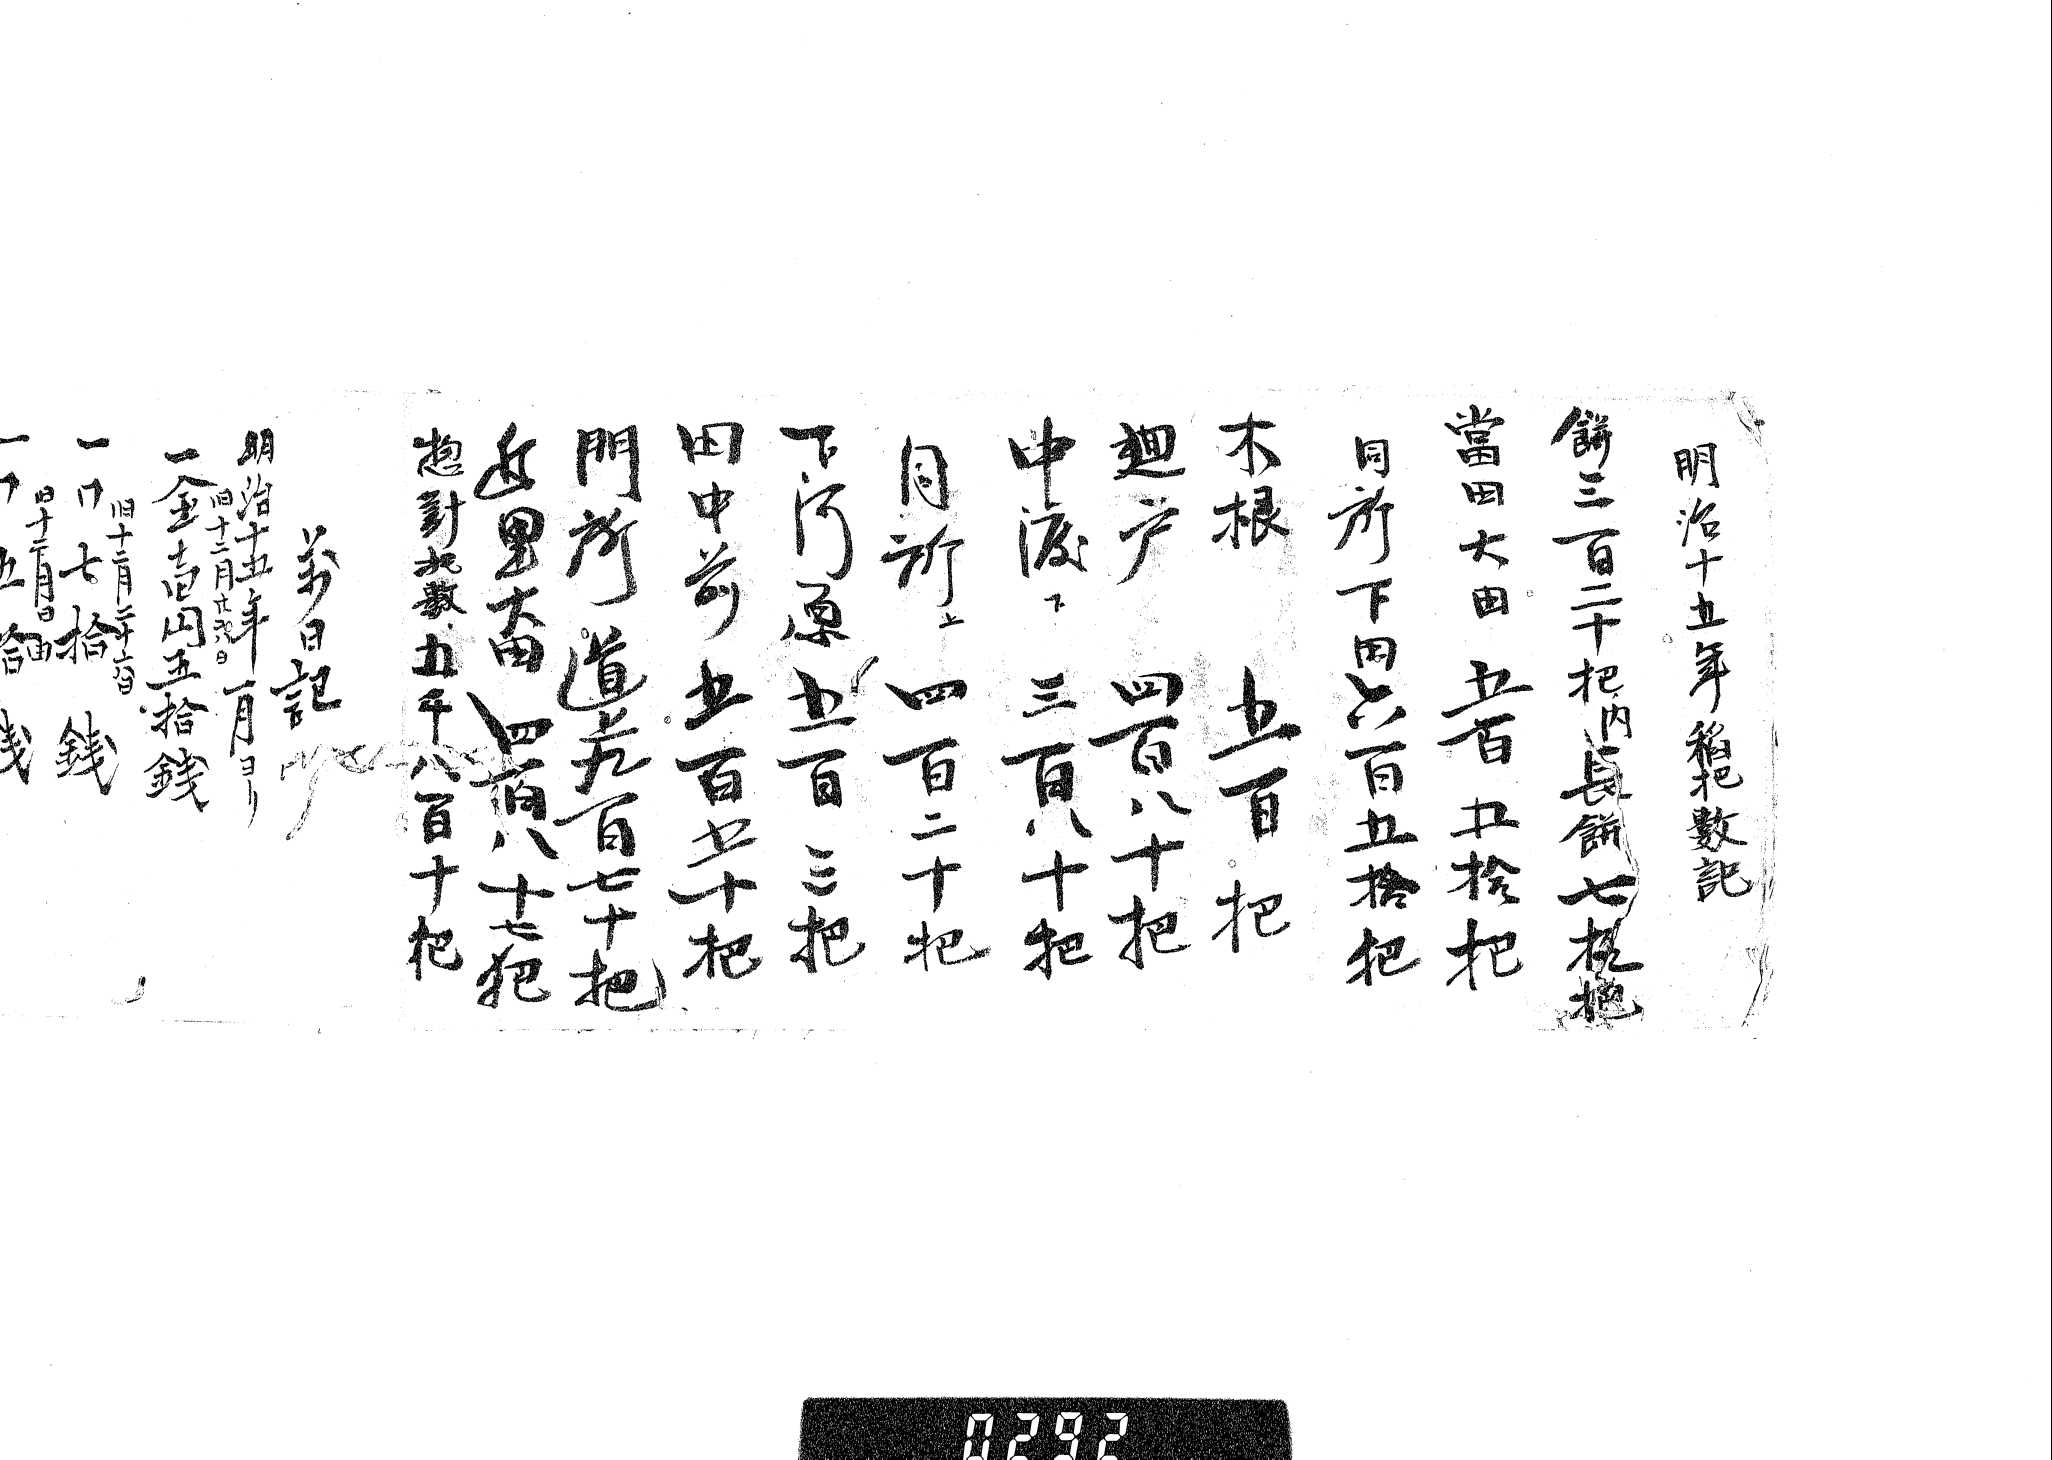 明治十五年稲把数記
餅三百二十把内長餅七拾把
當田大田五百五拾把
同所下田六百五拾把
木根五百把
廻戸四百八十把
中渡下三百八十把
同所上四百二十把
下河原五百三把
田中前五百五十把
門所道上九百七十把
近里大田四百八十七把
惣計把数五千八百十把
萬日記
明治十五年一月ヨリ
旧十二月廿弐日
一金壱円五拾銭
旧十二月二十六日
一〃七拾銭
旧十二月
一〃五拾銭
0292